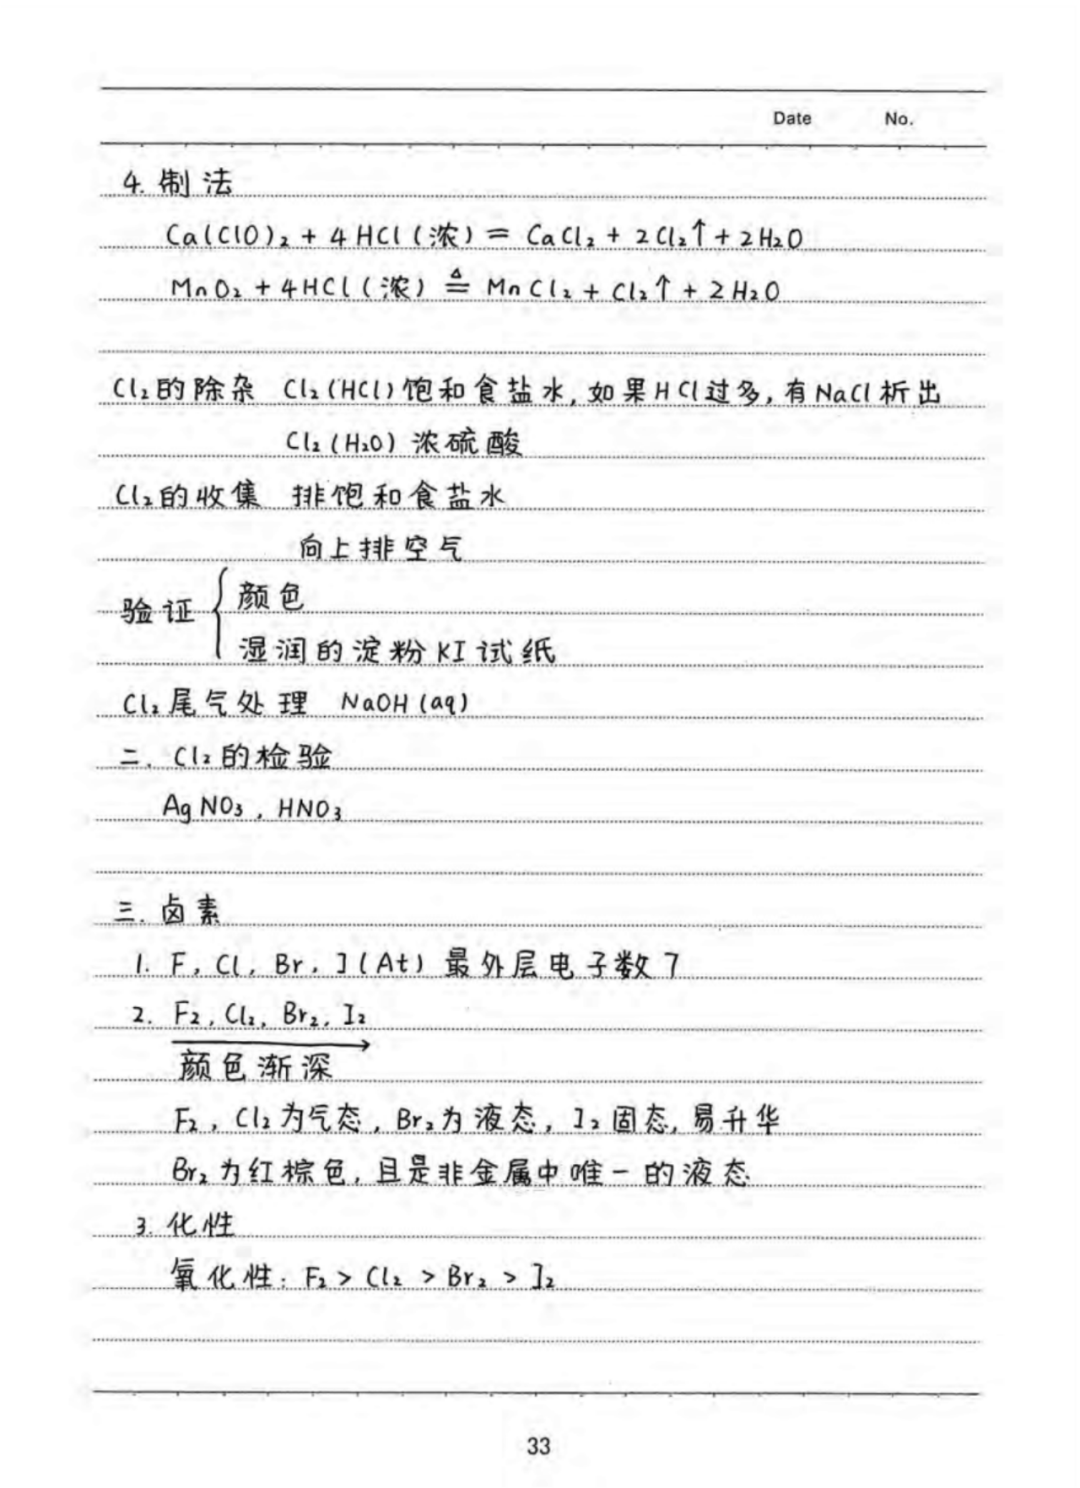 Date No.
4. 制法
Ca(ClO)₂ + 4HCl(浓) = CaCl₂ + 2Cl₂↑ + 2H₂O
MnO₂ + 4HCl(浓) ≜ MnCl₂ + Cl₂↑ + 2H₂O
Cl₂的除杂 Cl₂(HCl)饱和食盐水,如果HCl过多,有NaCl析出
Cl₂(H₂O) 浓硫酸
Cl₂的收集 排饱和食盐水
向上排空气
验证 { 颜色
湿润的淀粉KI试纸
Cl₂尾气处理 NaOH(aq)
二. Cl₂的检验
AgNO₃, HNO₃
三. 卤素
1. F, Cl, Br, I(At) 最外层电子数7
2. F₂, Cl₂, Br₂, I₂
颜色渐深
F₂, Cl₂为气态, Br₂为液态, I₂固态,易升华
Br₂为红棕色,且是非金属中唯一的液态
3. 化性
氧化性: F₂ > Cl₂ > Br₂ > I₂
33